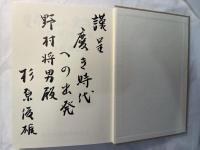 謹呈
広き時代
への出発
野村将男殿
杉原俊雄